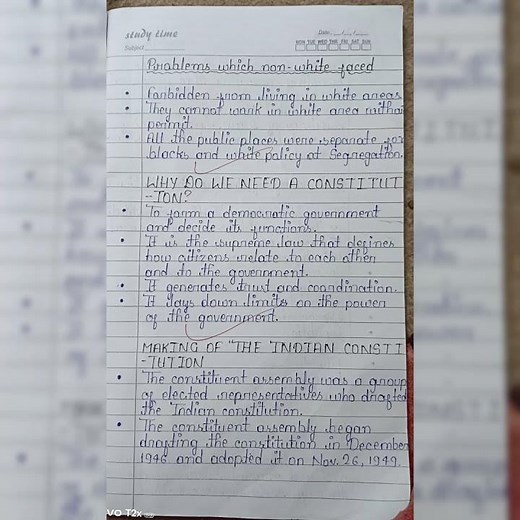 study time
Date: __/__/__
MON TUE WED THU FRI SAT SUN
Subject
Problems which non-white faced
Forbidden from living in white areas
They cannot work in white area withou
permit.
All the public places were separate for
blacks and white policy of Segregation.
WHY DO WE NEED A CONSTITUT
-TON?
To form a democratic government
and decide its functions.
It is the supreme law that defines
how citizens relate to each other
and to the government.
It generates trust and coordination.
It lays down limits on the power
of the government.
MAKING OF "THE INDIAN CONSTI
-TUTION
The constituent assembly was a group
of elected representatives who drafted
the Indian constitution.
The constituent assembly began
drafting the constitution in December
1946 and adopted it on Nov. 26, 1949.
VO T2x